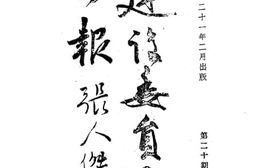 二十一年二月出版
第二十期
建設委員
報
張人傑